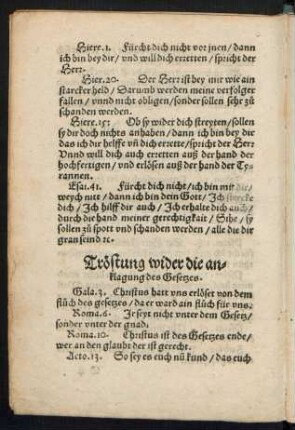 Hiere.1. Fürcht dich nicht vor jnen/ dann
ich bin bey dir/ vnd will dich erretten/ spricht der
Herr.
Hier.20. Der Herr ist bey mir wie ain
starcker held/ Darumb werden meine verfolger
fallen/ vnnd nicht obligen/ sonder sollen sehr zů
schanden werden.
Hiere.15: Ob sy wider dich streyten/ sollen
sy dir doch nichts anhaben/ dann ich bin bey dir
das ich dir helffe vñ dich errette/ spricht der Herr
Vnnd will dich auch erretten auß der hand der
hochfertigen/ vnd erlösen auß der hand der Ty-
rannen.
Esai.41. Fürcht dich nicht/ ich bin mit dir/
weych nitt/ dann ich bin dein Gott/ Jch stercke
dich/ Jch hilff dir auch/ Jch erhalte dich auch/
durch die hand meiner gerechtigkait/ Sihe/ sy
sollen zů spott vnd schanden werden/ alle die dir
gram seind ꝛc.
Tröstung wider die an-
klagung des Gesetzes.
Gala.3. Christus hatt vns erlöset von dem
flůch des gesetzes/ da er ward ain flůch für vns.
Roma.6. Jr seyt nicht vnter dem Gesetz/
sonder vnter der gnad.
Roma.10. Christus ist des Gesetzes ende/
wer an den glaubt der ist gerecht.
Acto.13. So sey es euch nů kund/ das euch